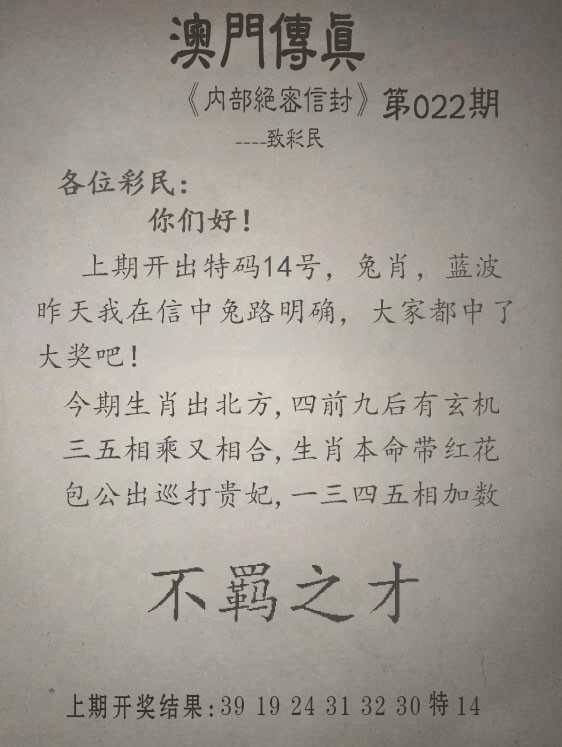 澳門傳真
《内部絕密信封》第022期
----致彩民
各位彩民:
你们好!
上期开出特码14号，兔肖，蓝波
昨天我在信中兔路明确，大家都中了
大奖吧!
今期生肖出北方,四前九后有玄机
三五相乘又相合,生肖本命带红花
包公出巡打贵妃,一三四五相加数
不羁之才
上期开奖结果:39 19 24 31 32 30 特 14